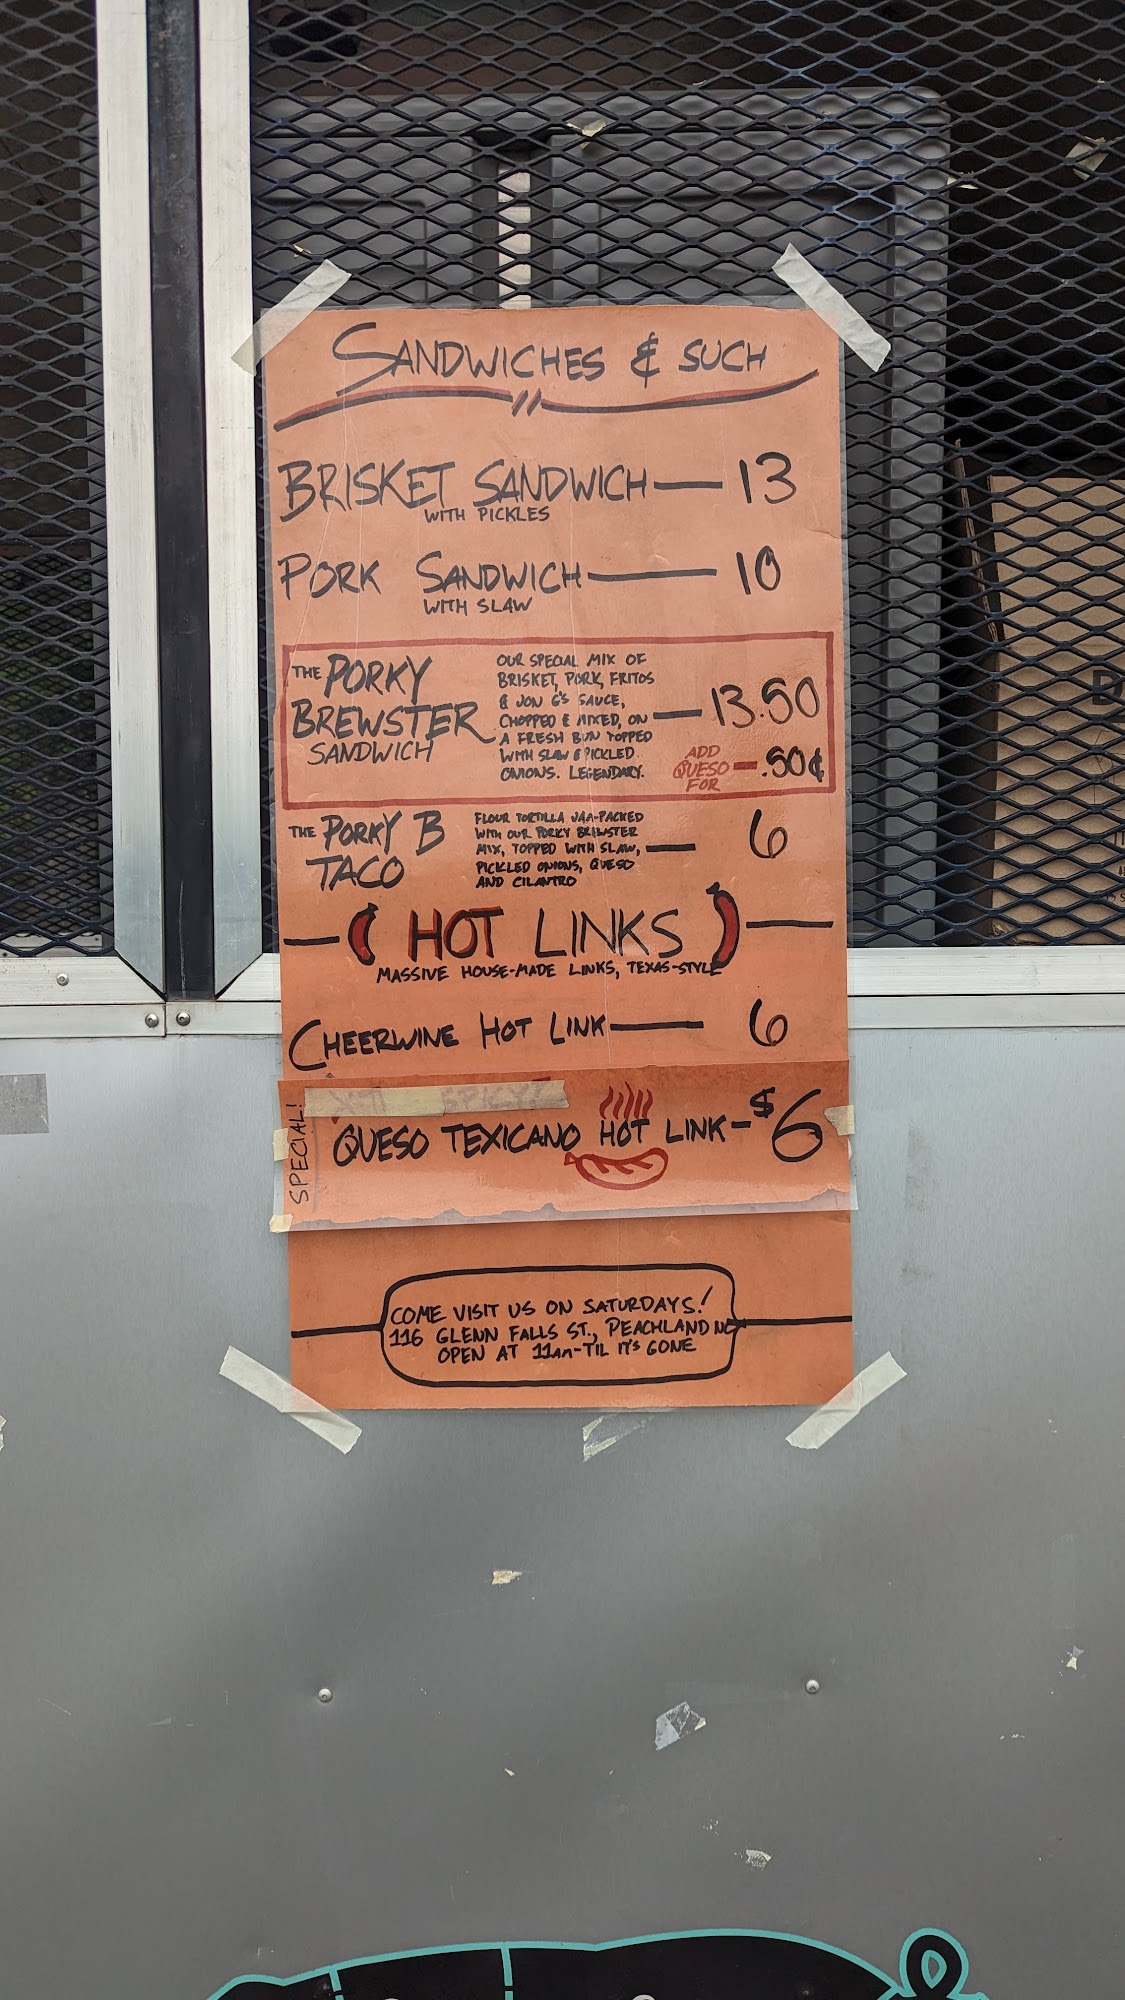 SANDWICHES & SUCH
BRISKET SANDWICH — 13
WITH PICKLES
PORK SANDWICH — 10
WITH SLAW
THE PORKY
BREWSTER
SANDWICH
OUR SPECIAL MIX OF
BRISKET, PORK, FRITOS
& JON G'S SAUCE,
CHOPPED & MIXED, ON
A FRESH BUN TOPPED
WITH SLAW & PICKLED
ONIONS. LEGENDARY.
— 13.50
ADD
QUESO
FOR
— .50¢
THE PORKY B
TACO
FLOUR TORTILLA JAM-PACKED
WITH OUR PORKY BREWSTER
MIX, TOPPED WITH SLAW,
PICKLED ONIONS, QUESO
AND CILANTRO
— 6
HOT LINKS
MASSIVE HOUSE-MADE LINKS, TEXAS-STYLE
CHEERWINE HOT LINK — 6
SPECIAL!
SPICY!
QUESO TEXICANO HOT LINK - $6
COME VISIT US ON SATURDAYS!
116 GLENN FALLS ST., PEACHLAND NC
OPEN AT 11AM-TIL IT'S GONE